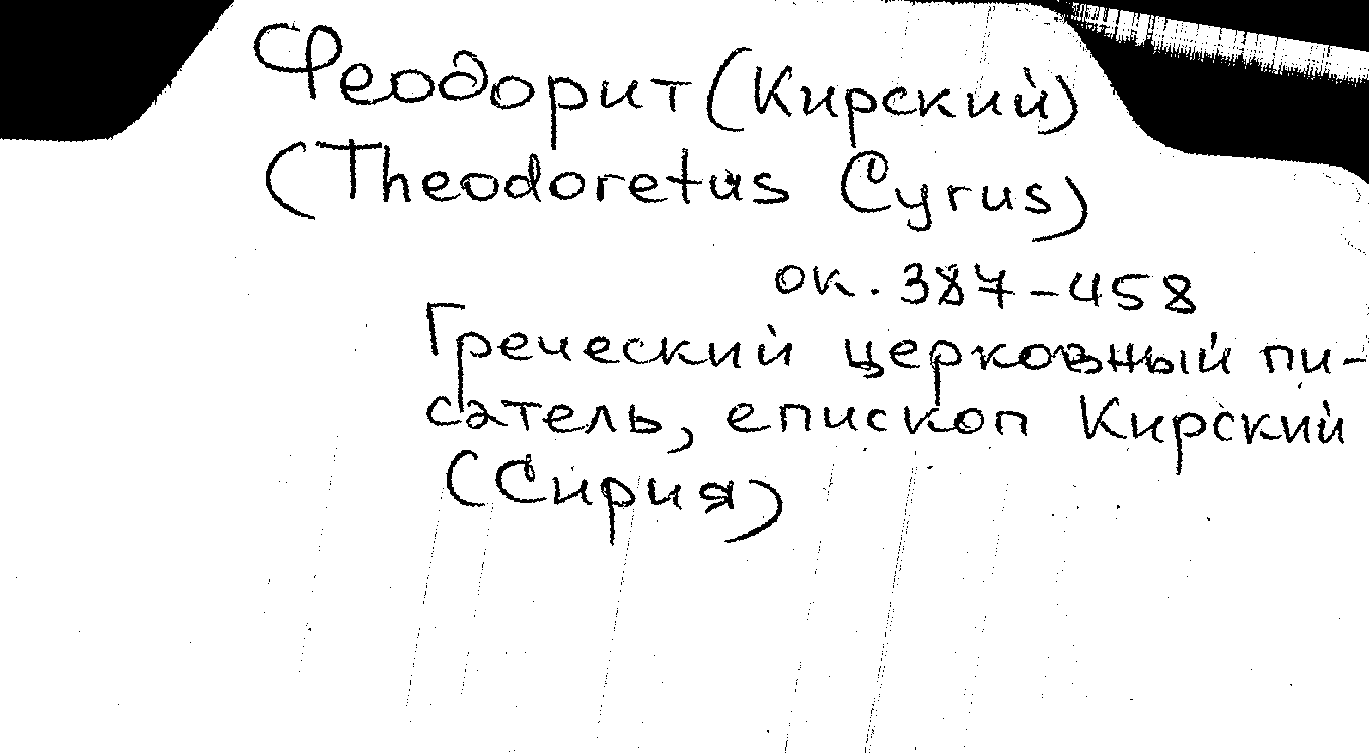 Феодорит (Кирский)
(Theodoretus Cyrus)
ок. 387-458
Греческий церковный пи-
сатель, епископ Кирский
(Сирия)